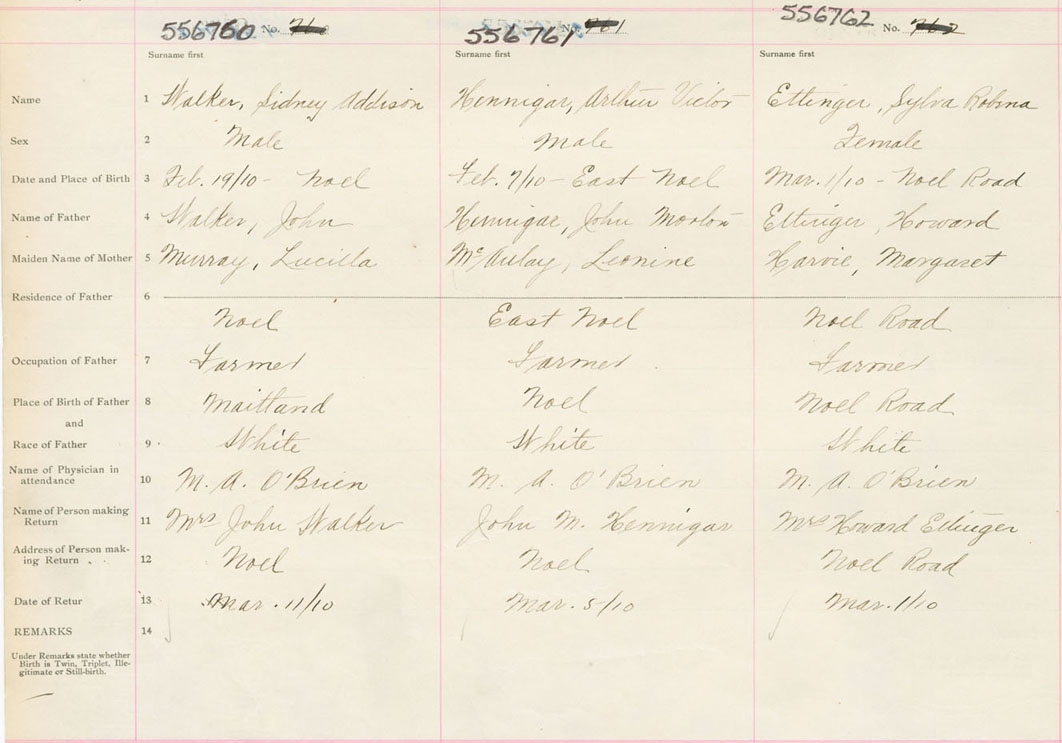 556760 No.
556761 No. 761
556762 No. 762
Surname first Surname first Surname first
Name 1 Walker, Sidney Addison Hennigar, Arthur Victor Ettinger, Sylva Robina
Sex 2 Male Male Female
Date and Place of Birth 3 Feb. 19/10 - Noel Feb. 7/10 - East Noel Mar. 1/10 - Noel Road
Name of Father 4 Walker, John Hennigar, John Morton Ettinger, Howard
Maiden Name of Mother 5 Murray, Lucilla McAulay, Leonine Harvie, Margaret
Residence of Father 6
Noel East Noel Noel Road
Occupation of Father 7 Farmer Farmer Farmer
Place of Birth of Father 8 Maitland Noel Noel Road
and
Race of Father 9 White White White
Name of Physician in
attendance 10 M. A. O'Brien M. A. O'Brien M. A. O'Brien
Name of Person making
Return 11 Mrs John Walker John M. Hennigar Mrs Howard Ettinger
Address of Person mak-
ing Return 12 Noel Noel Noel Road
Date of Retur 13 Mar. 11/10 Mar. 5/10 Mar. 1/10
REMARKS 14
Under Remarks state whether
Birth is Twin, Triplet, Ille-
gitimate or Still-birth.